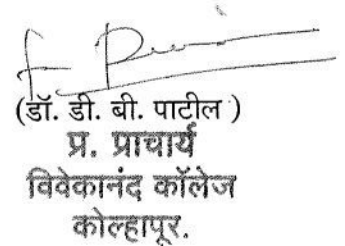 (डॉ. डी. बी. पाटील )
प्र. प्राचार्य
विवेकानंद कॉलेज
कोल्हापूर.